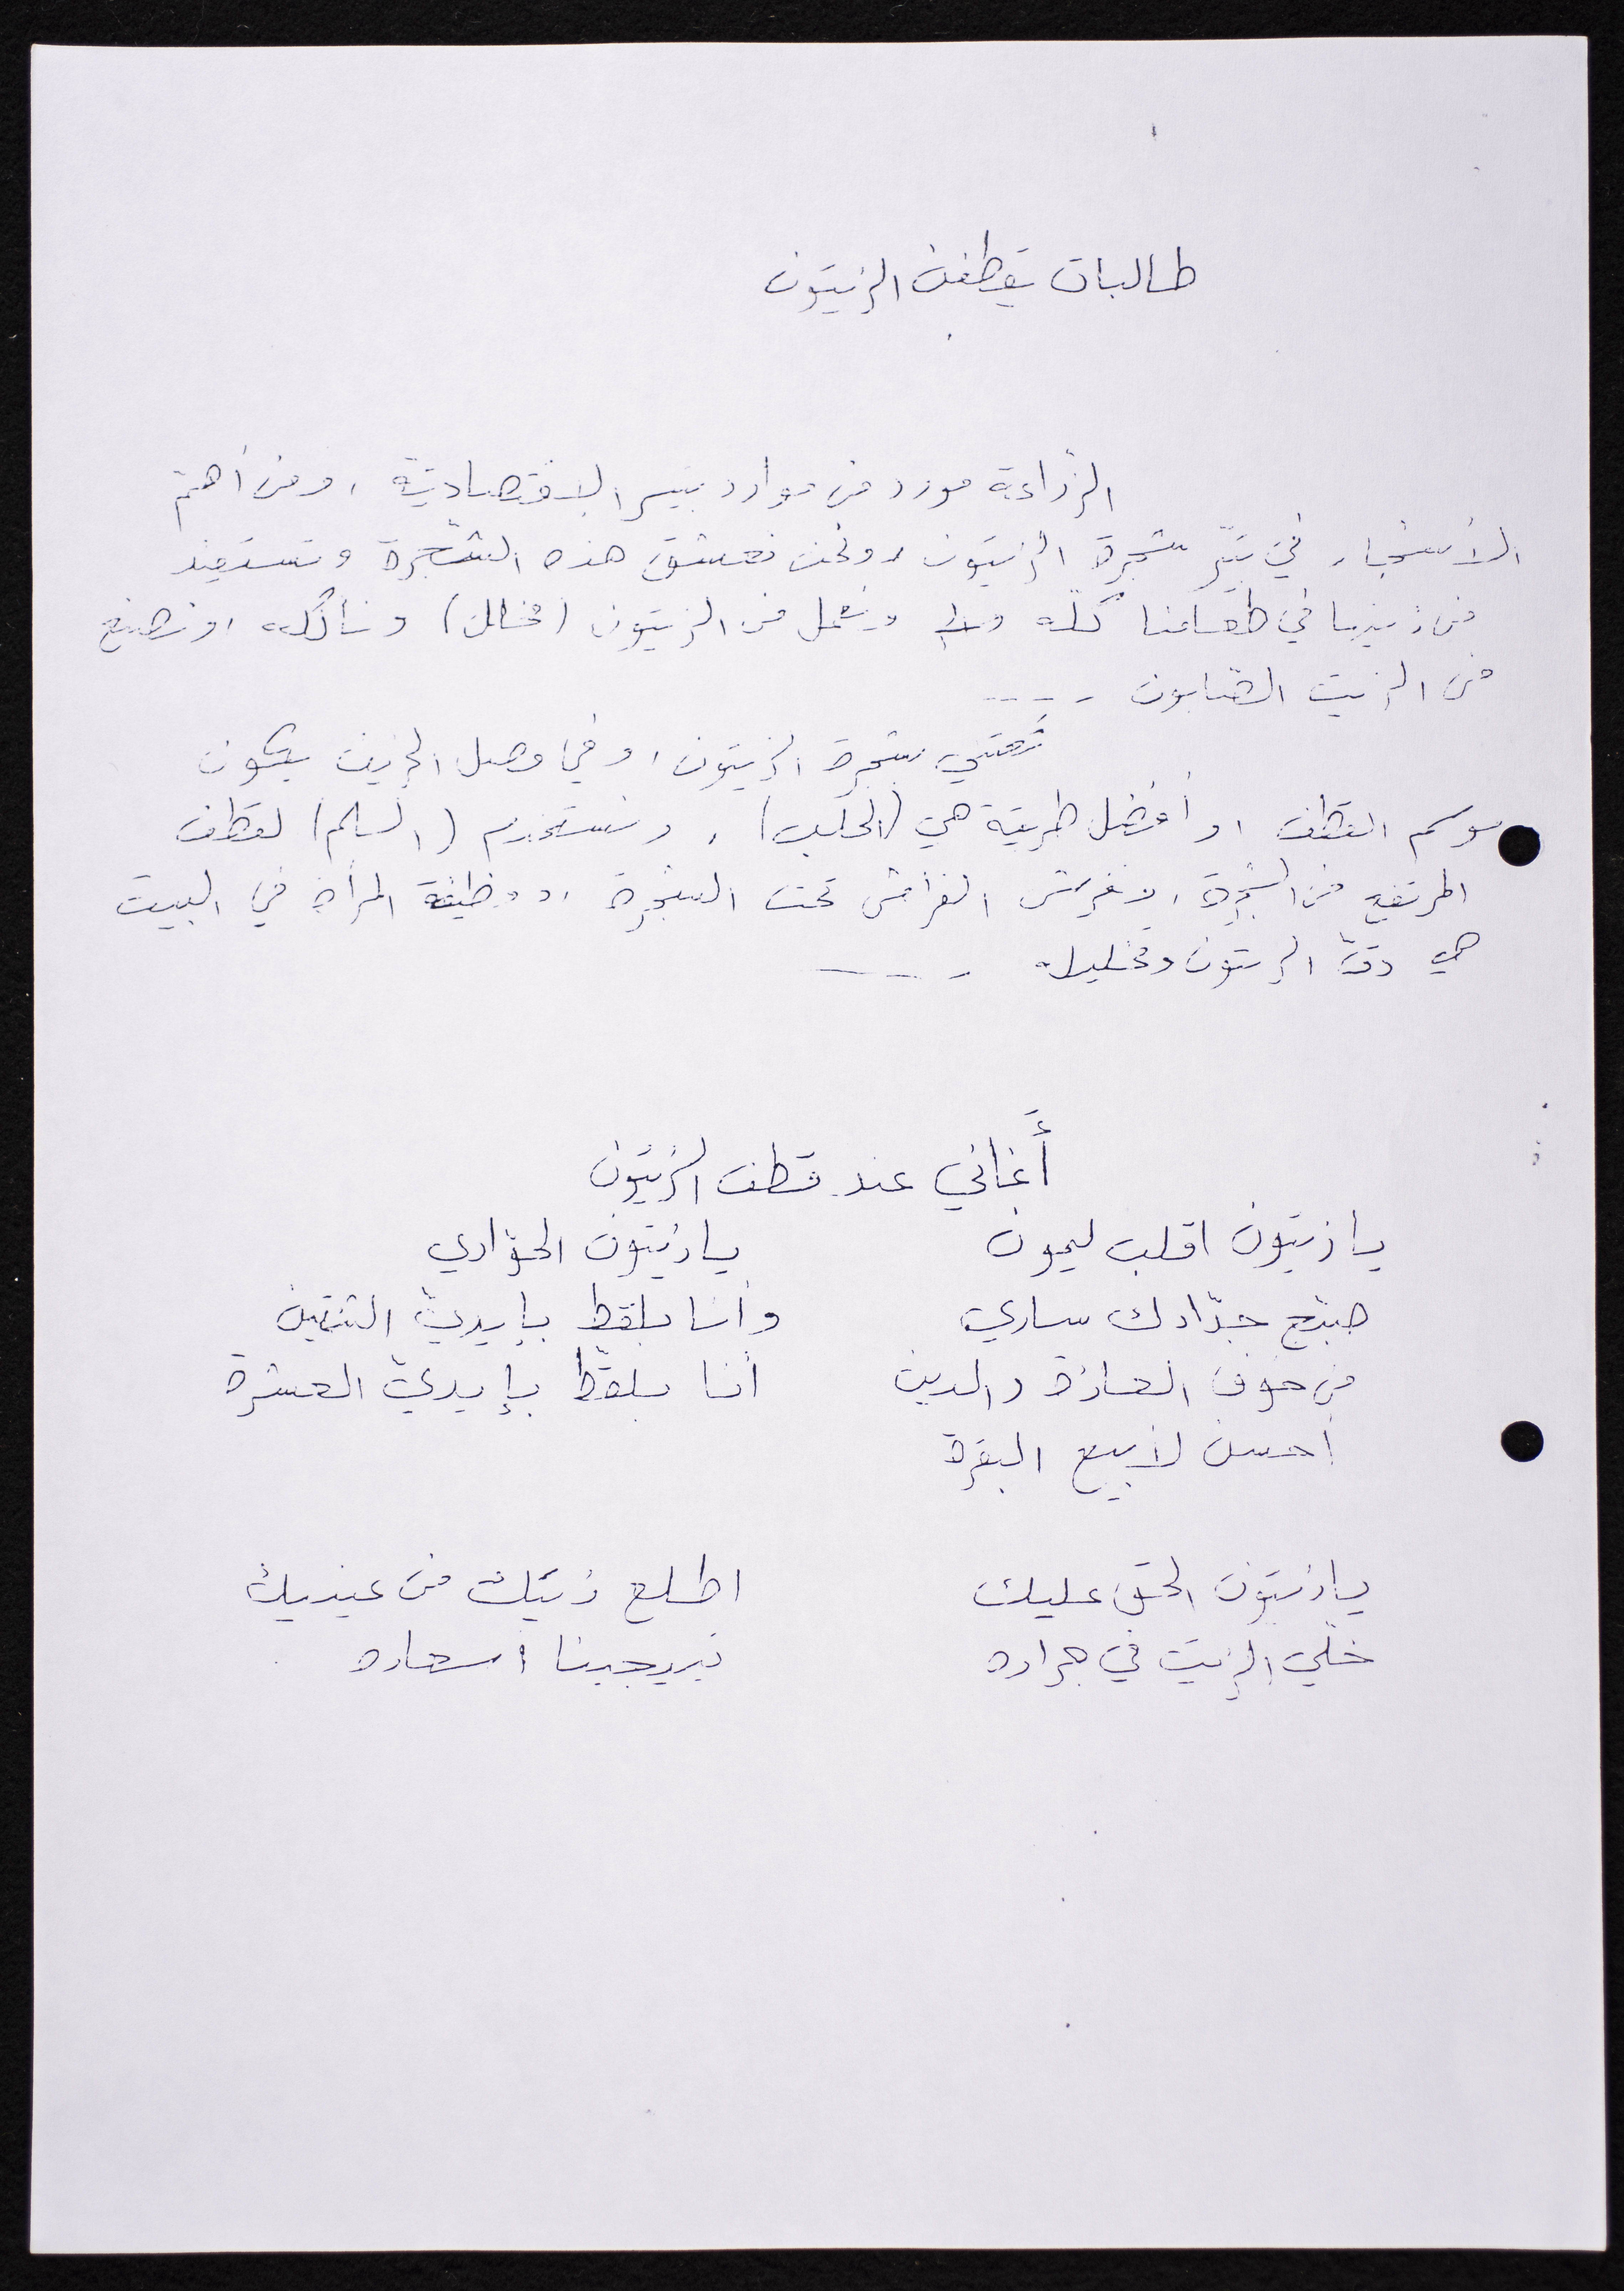 طالبات يقطفن الزيتون
الزراعة مورد من موارد تيّر الاقتصاديّة ، ومن أهمّ
الأشجار في تيّر شجرة الزيتون ، ونحن نعشق هذه الشّجرة ونستفيد
من زيتها في طعامنا كلّه ونعمل من الزيتون (مخلل) ونأكله ، ونصنع
من الزيت الصّابون - ---
نعتني بشجرة الزيتون ، وفي فصل الخريف يكون
موسم القطف ، وأفضل طريقة هي (الحلب) ، ونستخدم (السلم) لقطف
المرتفع من الشجرة ، ونفرش الفراش تحت الشجرة ، ووظيفة المرأة في البيت
هي دقّ الزيتون وتخليله - ---
أغاني عند قطف الزيتون
يا زيتون اقلب ليمون يا زيتون الحوّاري
صبّح جدّادك ساري وأنا بلقط بإيديّ الثنتين
من خوف العازة والدين أنا بلقّط بإيديّ العشرة
أحسن لأبيع البقرة
يا زيتون الحق عليك اطلع زيتك من عينيك
خلّي الزيت في جراره أسعاره